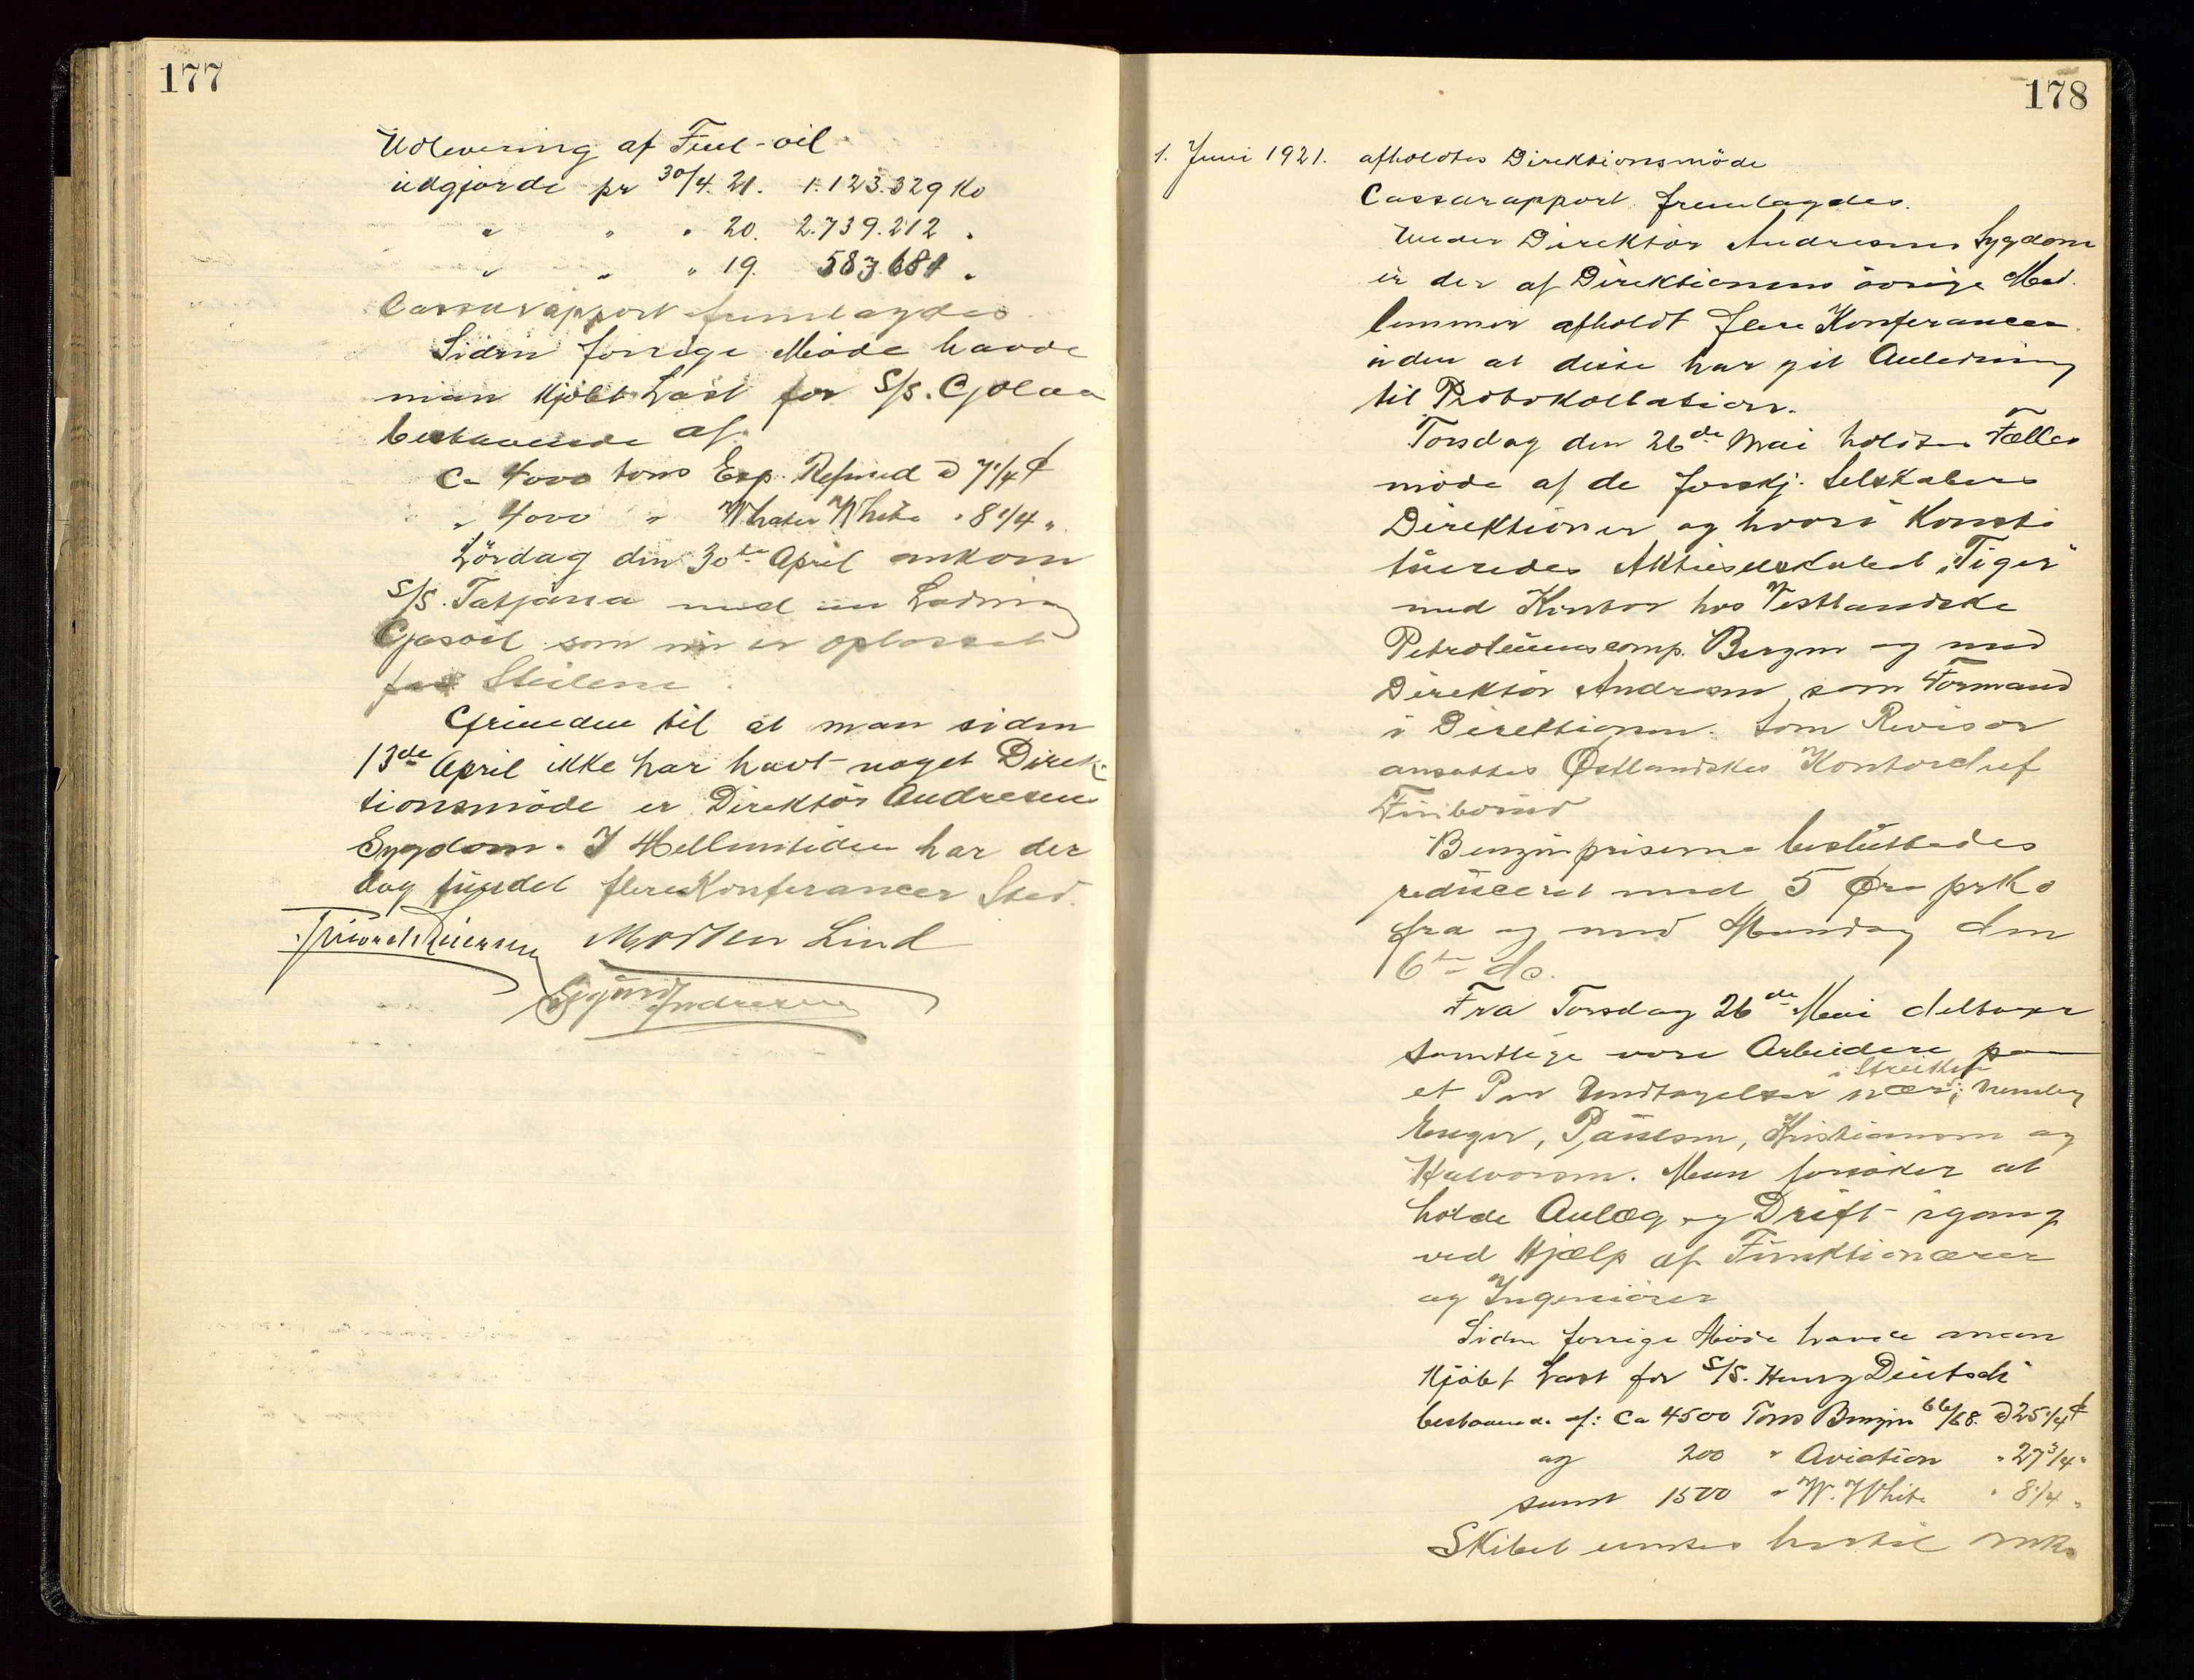 177
Udlevering af Fuel-oil
udgjorde pr 30/4. 21. 1.123.329 Ko
" " " 20. 2.739.212 "
" " " 19. 583.681 "
Cassarapport fremlagdes.
Siden forrige Møde havde
man kjøbt Last for S/S. Gjølaa
bestaaende af
Ca 4000 tons Exp. Refined à 7 1/4 ¢
" 4000 " Whater White " 8 1/4 "
Lørdag den 30te April ankom
S/S. Tatjana med en Ladning
Gasoil som nu er oplosset
paa Steilene.
Grunden til at man siden
13de April ikke har havt noget Direk-
tionsmøde er Direktør Andresens
Sygdom. I Mellemtiden har der
dog fundet flere Konferancer Sted.
Morten Lind
Sigurd Andresen
178
1. Juni 1921. afholdtes Direktionsmøde
Cassarapport fremlagdes.
Under Direktør Andresens Sygdom
er der af Direktionens øvrige Med-
lemmer afholdt flere Konferancer
uden at disse har git Anledning
til Protokollation.
Torsdag den 26de Mai holdtes Fælles
møde af de forskj. Selskabers
Direktioner og hvori Konsti
tueredes Aktieselskabet "Tiger"
med Kontor hos Vestlandske
Petroleumscomp. Bergen og med
Direktør Andresen som Formand
i Direktionen. Som Revisor
ansattes Østlandskes Kontorchef
Finborud
Benzinpriserne besluttedes
reduceret med 5 Øre pr Ko
fra og med Mandag den
6te ds.
Fra Torsdag 26de Mai deltager
samtlige vore Arbeidere paa
et Par Undtagelser nær i Streiken; nemlig
Enger, Paulsen, Kristiansen og
Halvorsen. Man forsøker at
holde Anlæg og Drift igang
ved Hjælp af Funktionærer
og Ingeniører
Siden forrige Møde havde man
Kjøbt Last for S/S. Henry Deutsch
bestaaende af: Ca 4500 Tons Benzin 66/68. à 25 1/4 ¢
og 200 " Aviation " 27 3/4 "
samt 1500 " W. White " 8 1/4 "
Skibet ventes hertil